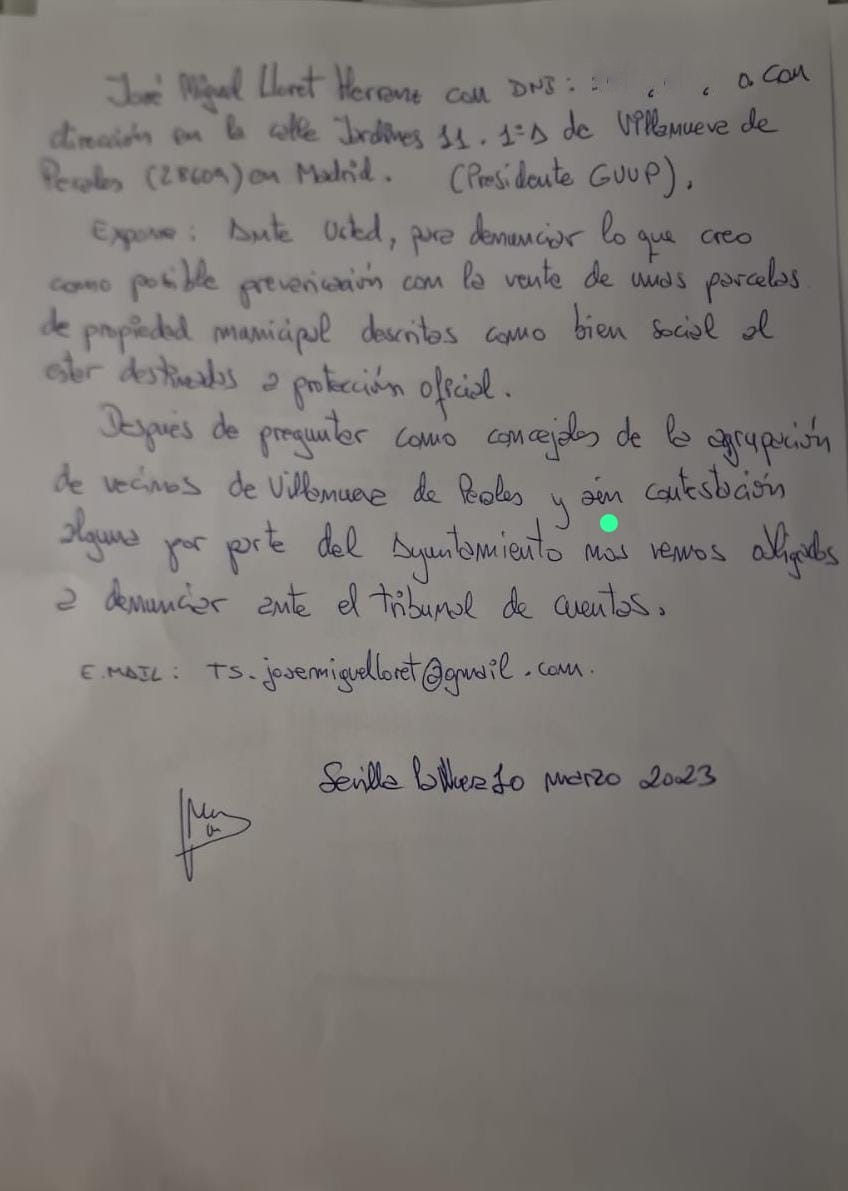 José Miguel Lloret Herranz con DNI: a con
dirección en la calle Jardines 11. 1º A de Villanueva de
Perales (28609) en Madrid. (Presidente GUUP).
Expone: Ante Usted, para denunciar lo que creo
como posible prevericación con la venta de unas parcelas
de propiedad municipal descritas como bien social al
estar destinados a protección oficial.
Después de preguntar como concejales de la agrupación
de vecinos de Villanueva de Perales y sin contestación
alguna por parte del Ayuntamiento nos vemos obligados
a denunciar ante el tribunal de cuentas.
E.MAIL: TS.josemiguellloret@gmail.com.
Sevilla la Nueva 10 marzo 2023